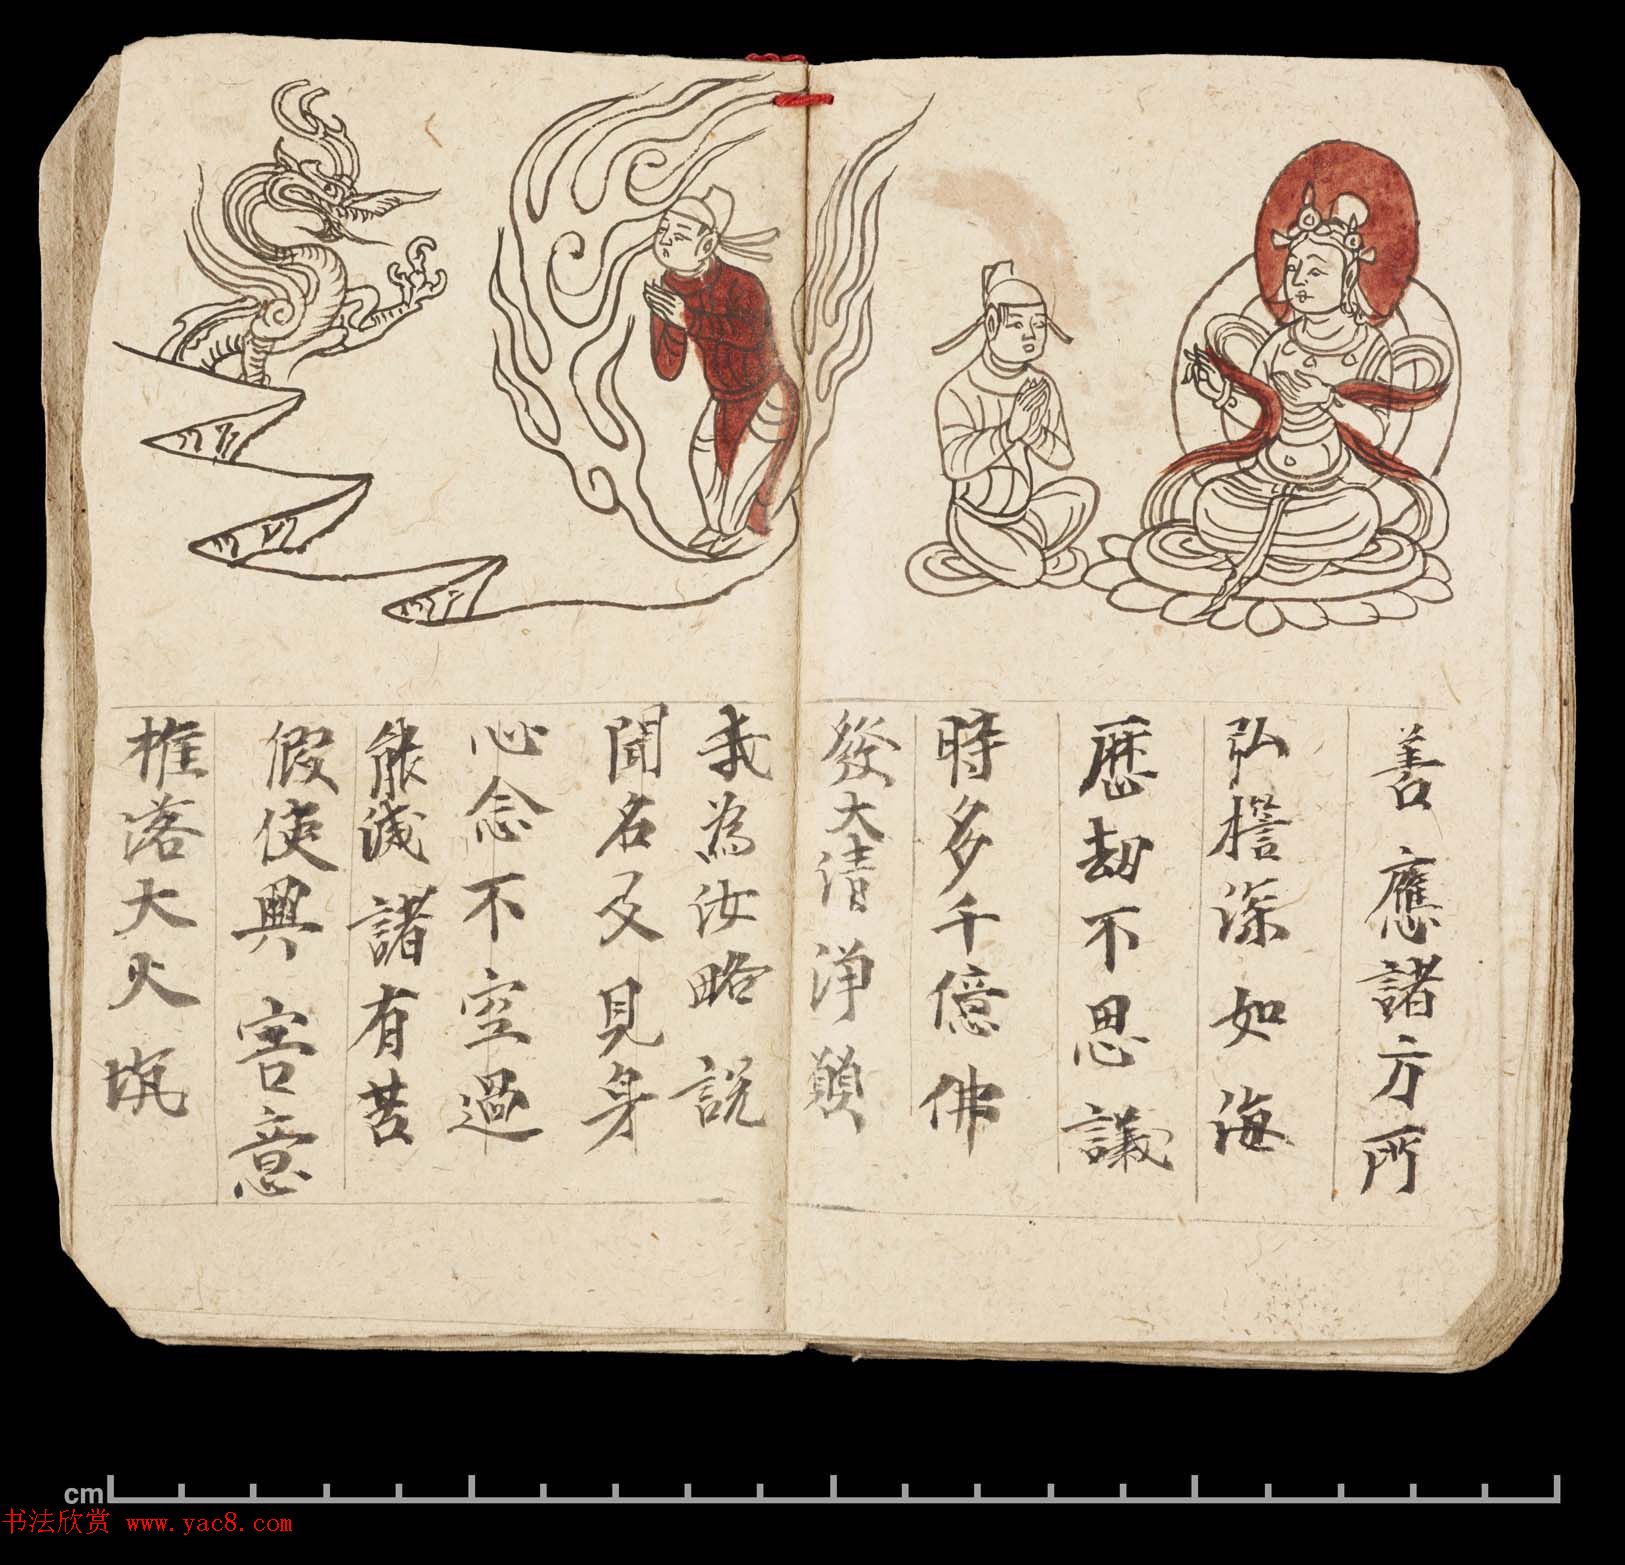 善應諸方所
弘擔深如海
歷劫不思議
時多千億佛
發大清淨願
我為汝略說
聞名及見身
心念不空過
能滅諸有苦
假使興害意
推落大火坑
cm
书法欣赏 www.yac8.com